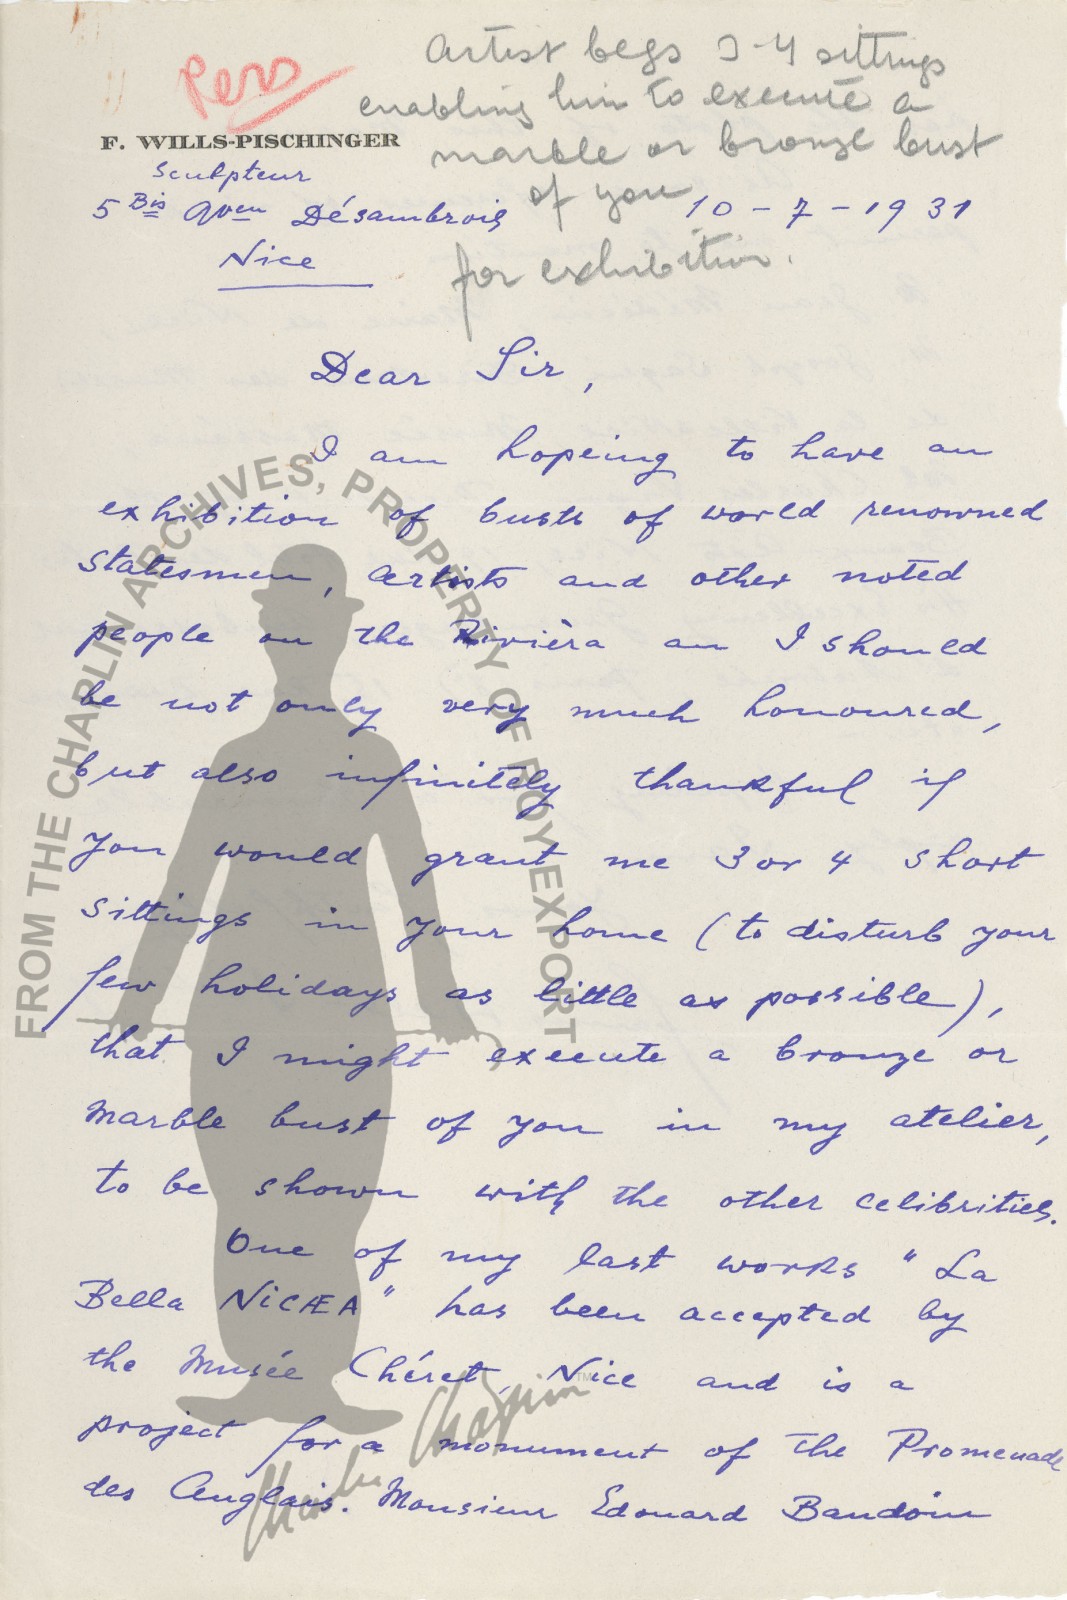 Pers
Artist begs 3-4 sittings
enabling him to execute a
marble or bronze bust
of you
for exhibition.
F. WILLS-PISCHINGER
Sculpteur
5 Bis Aven Désambrois
Nice
10-7-1931
Dear Sir,
I am hopeing to have an
exhibition of busts of world renowned
statesmen, artists and other noted
people on the Rivièra an I should
be not only very much honoured,
but also infinitely thankful if
you would grant me 3 or 4 short
sittings in your home (to disturb your
few holidays as little as possible),
that I might execute a bronze or
marble bust of you in my atelier,
to be shown with the other celibrities.
One of my last works "La
Bella NICÆA" has been accepted by
the Musée Chéret, Nice and is a
project for a monument of the Promenade
des Anglais. Monsieur Edouard Baudoin
FROM THE CHAPLIN ARCHIVES, PROPERTY OF ROY EXPORT
Charlie Chaplin TM